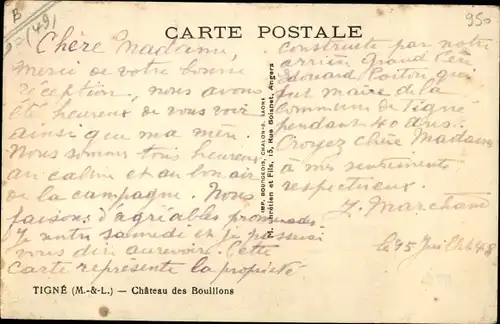 B
(49)
950
CARTE POSTALE
Chère Madame,
Merci de votre bonne
réception, nous avons
été heureux de vous voir
ainsi que ma mère.
Nous sommes tous heureux
au calme et au bon air
de la campagne. Nous
faisons d'agréables promenades.
Je rentre samedi et je passerai
vous dire au revoir. Cette
Carte représente la propriété
construite par notre
arrière Grand Père
Edouard Poitou qui
fut maire de la
Commune de Tigné
pendant 40 ans.
Croyez chère Madame
à mes sentiments
respectueux.
J. Marchand
le 25 Juillet 48
IMP. BOURGEOIS, CHALON-S.-SAONE
M. Chrétien et Fils, 15, Rue Boisnet, Angers
TIGNÉ (M.-&-L.) — Château des Bouillons